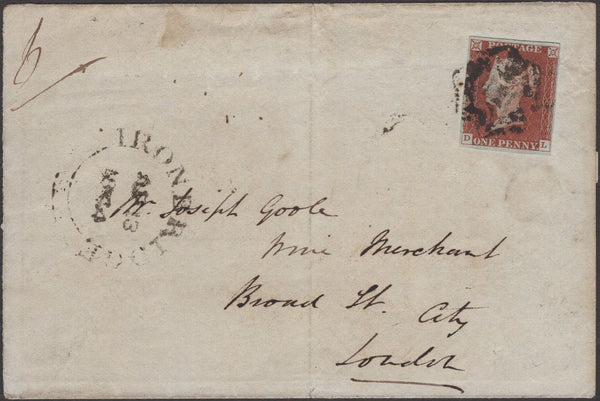 6
POSTAGE
D ONE PENNY L
IRONBRIDGE
Mr. Joseph Goole
Wine Merchant
Broad St. City
London